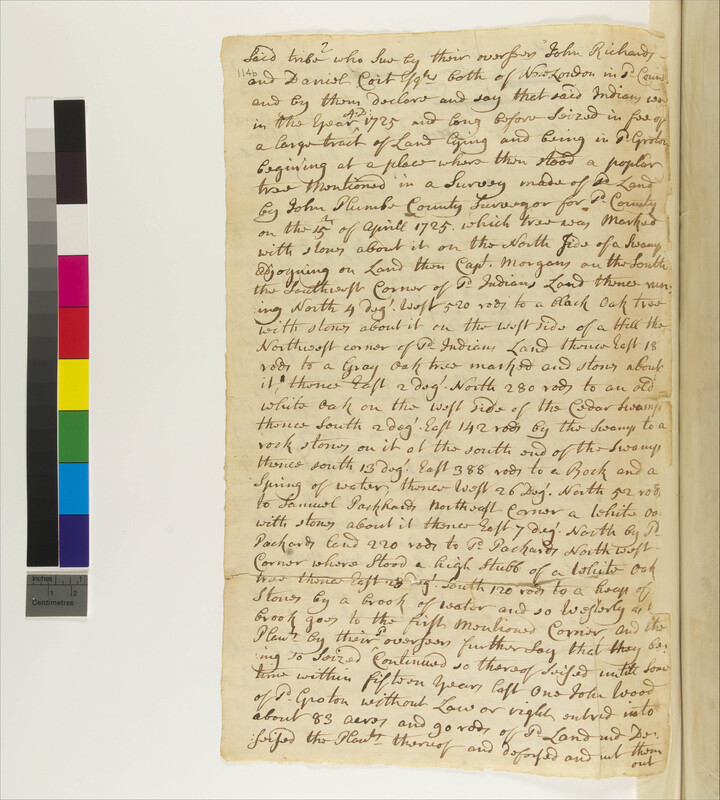 Said tribe who Sue by their overseers John Richards
1146
and Daniel Coit Esqrs both of New London in sd County
and by them declare and say that said Indians were
in the Year AD: 1725 and long before Seized in fee of
a large tract of Land lying and being in sd Groton
begining at a place where then stood a poplar
tree Mentioned in a Survey made of sd Land
by John Plumbe County Surveyor for sd County
on the 15th of Aprill 1725. which tree was Marked
with stones about it on the North Side of a Swamp
adjoyning on Land then Capt. Morgans on the South
the Southwest Corner of sd Indians Land thence run-
ing North 4 degr. West 520 rods to a black Oak tree
with stones about it on the west side of a Hill the
Northwest corner of sd Indians Land thence East 18
rods to a Gray Oak tree marked and stones about
it, thence East 2 degr. North 280 rods to an old
white Oak on the west side of the Cedar Swamp
thence South 2 degr. East 142 rods by the Swamp to a
rock stones on it at the south end of the Swamp
thence south 13 degr. East 388 rods to a Rock and a
Spring of water, thence West 26 Degr. North 52 rods
to Samuel Packhards Northeast Corner a White Oa
with stones about it thence East 7 degr. North by sd
Packards land 220 rods to sd Packards Northwest
Corner where Stood a high Stubb of a White Oak
tree thence East degr. South 120 rods to a heap of
Stones by a brook of water and so Westerly as
brook goes to the first Mentioned Corner and the
Plawts by their sd overseers further Say that they be-
ing so Seized Continued so thereof Seised untill some
time within fifteen Years last One John Wood
of sd Groton without Law or right entred into
about 83 acres and 90 rods of sd Land and De-
seised the Plawts thereof and deforsed and put them
out